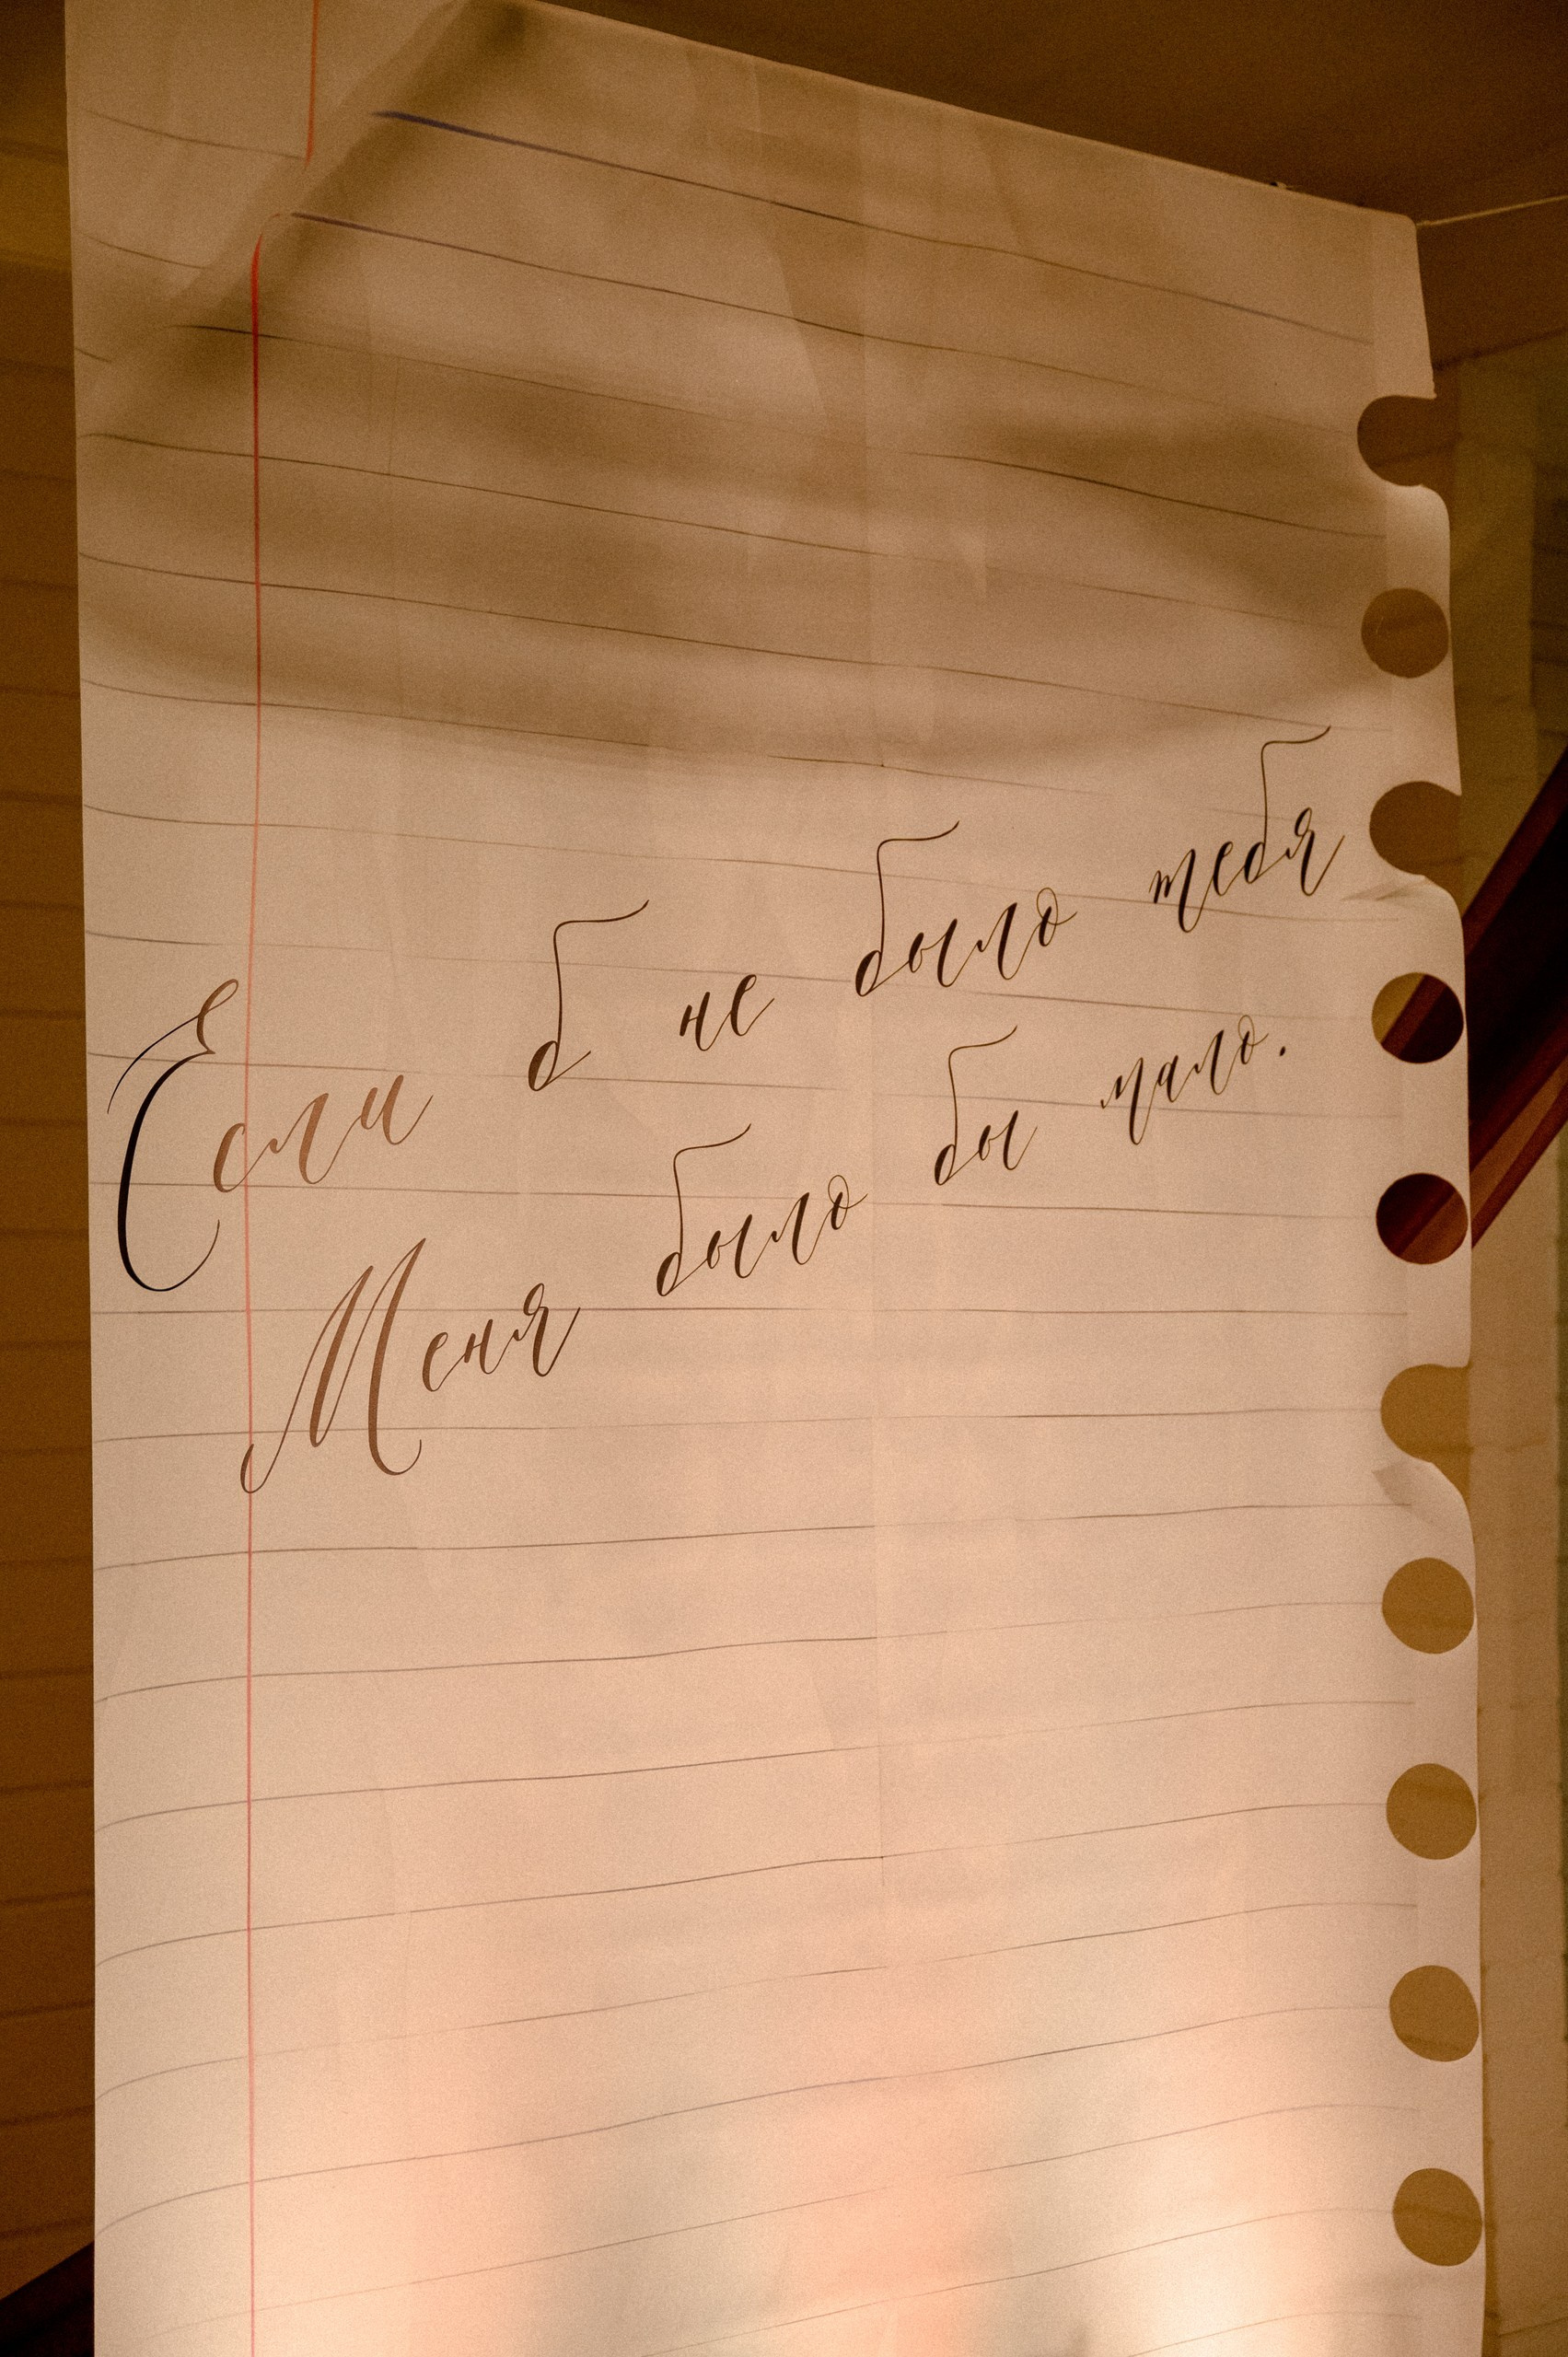 Если б не было тебя
Меня было бы мало.